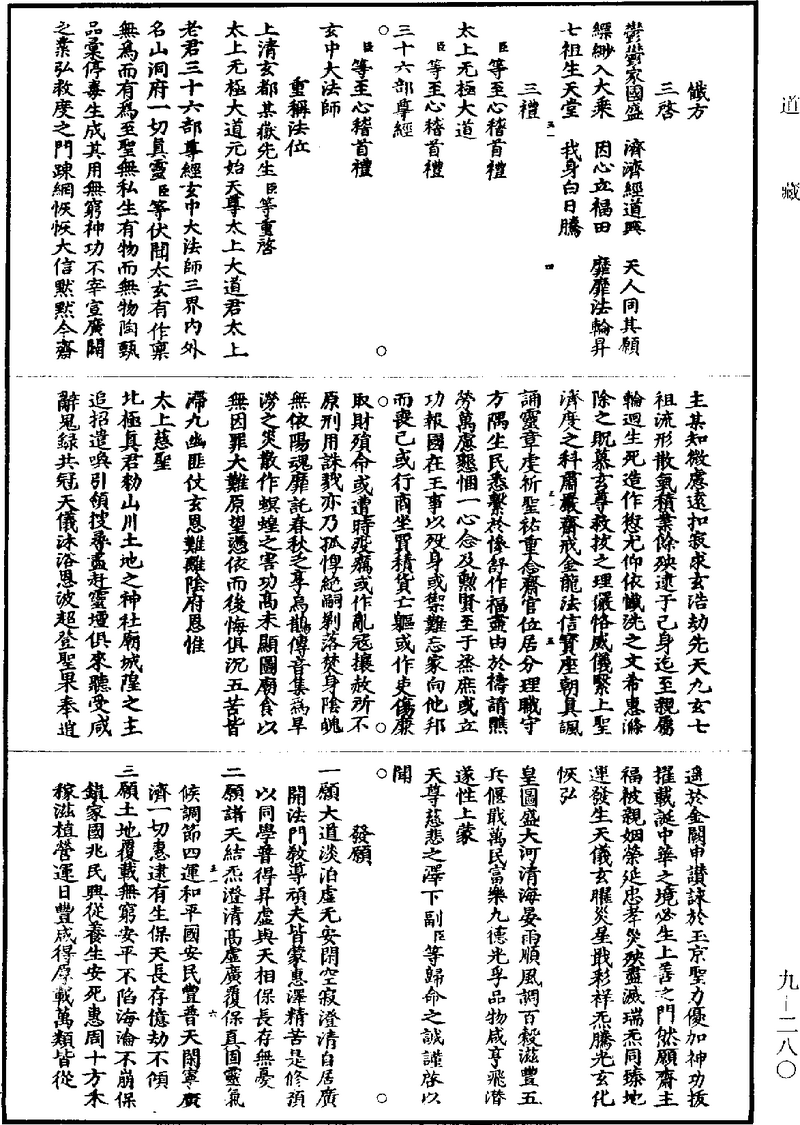 道藏
懴方
三啓
鬱鬱家國盛　濟濟經道興　天人同其願
縹緲入大乘　因心立福田　靡靡法輪昇
七祖生天堂　我身白日騰
三禮
臣等至心稽首禮
太上无極大道
臣等至心稽首禮
三十六部尊經
臣等至心稽首禮
玄中大法師
重稱法位
上清玄都某嶽先生臣等重啓
太上无極大道元始天尊太上大道君太上
老君三十六部尊經玄中大法師三界內外
名山洞府一切真靈臣等伏聞太玄有作稟
無為而有為至聖無私生有物而無物陶甄
品彙停毒生成其用無窮神功不宰宣廣闢
之業弘救度之門踈網恢恢大信默默今齋
主某知微慮遠扣寂求玄浩劫先天九玄七
祖流形散氣積業餘殃逮于己身迄至親屬
輪迴生死造作愆尤仰依懴洗之文希惠滌
除之既慕玄尊救拔之理儼恪威儀緊上聖
濟度之科肅嚴齋戒金龍法信寶座朝真諷
誦靈章虔祈聖祐重念齋官位居分理職守
方隅生民悉繫於慘舒作福盡由於禱請焦
勞萬慮懇悃一心念及勲賢至于烝庶或立
功報國在王事以殁身或禦難忘家向他邦
而喪己或行商坐買積貨亡軀或作吏傷廉
取財殞命或遭時疫癘或作亂冦攘赦所不
原刑用誅戮亦乃孤惸絶嗣剃落焚身陰魄
無依陽魂靡託春秋乏享烏鵲傳音集為旱
澇之災散作螟蝗之害功高未顯圖廟食以
無因罪大難原望憑依而後悔俱沉五苦皆
滯九幽匪仗玄恩難離陰府恩惟
太上慈聖
北極真君勑山川土地之神社廟城隍之主
追招遣喚引領搜尋盡赴靈壇俱來聽受咸
辭鬼録共冠天儀沐浴恩波超登聖果奉逍
遥於金闕申讃諫於玉京聖力優加神功拔
擢載誕中華之境必生上善之門然願齋主
福被親姻榮延忠孝災殃盡滅瑞炁同臻地
運發生天儀玄曜災星戢彩祥炁騰光玄化
恢弘
皇圖盛大河清海晏雨順風調百穀滋豐五
兵偃戢萬民富樂九德光孚品物咸亨飛潛
遂性上蒙
天尊慈悲之澤下副臣等歸命之誠謹啓以
聞
發願
一願大道淡泊虛无安閑空寂澄清自居廣
開法門教導頑夫皆蒙惠澤精苦是修須
以同學普得昇虛與天相保長存無憂
二願諸天結炁澄清髙虛廣覆保真固靈氣
候調節四運和平國安民豐普天閑寧廣
濟一切惠逮有生保天長存億劫不傾
三願土地覆載無窮安平不陷海淪不崩保
鎮家國兆民興從養生安死惠周十方禾
稼滋植營運日豐咸得厚載萬類皆從
九－二八〇